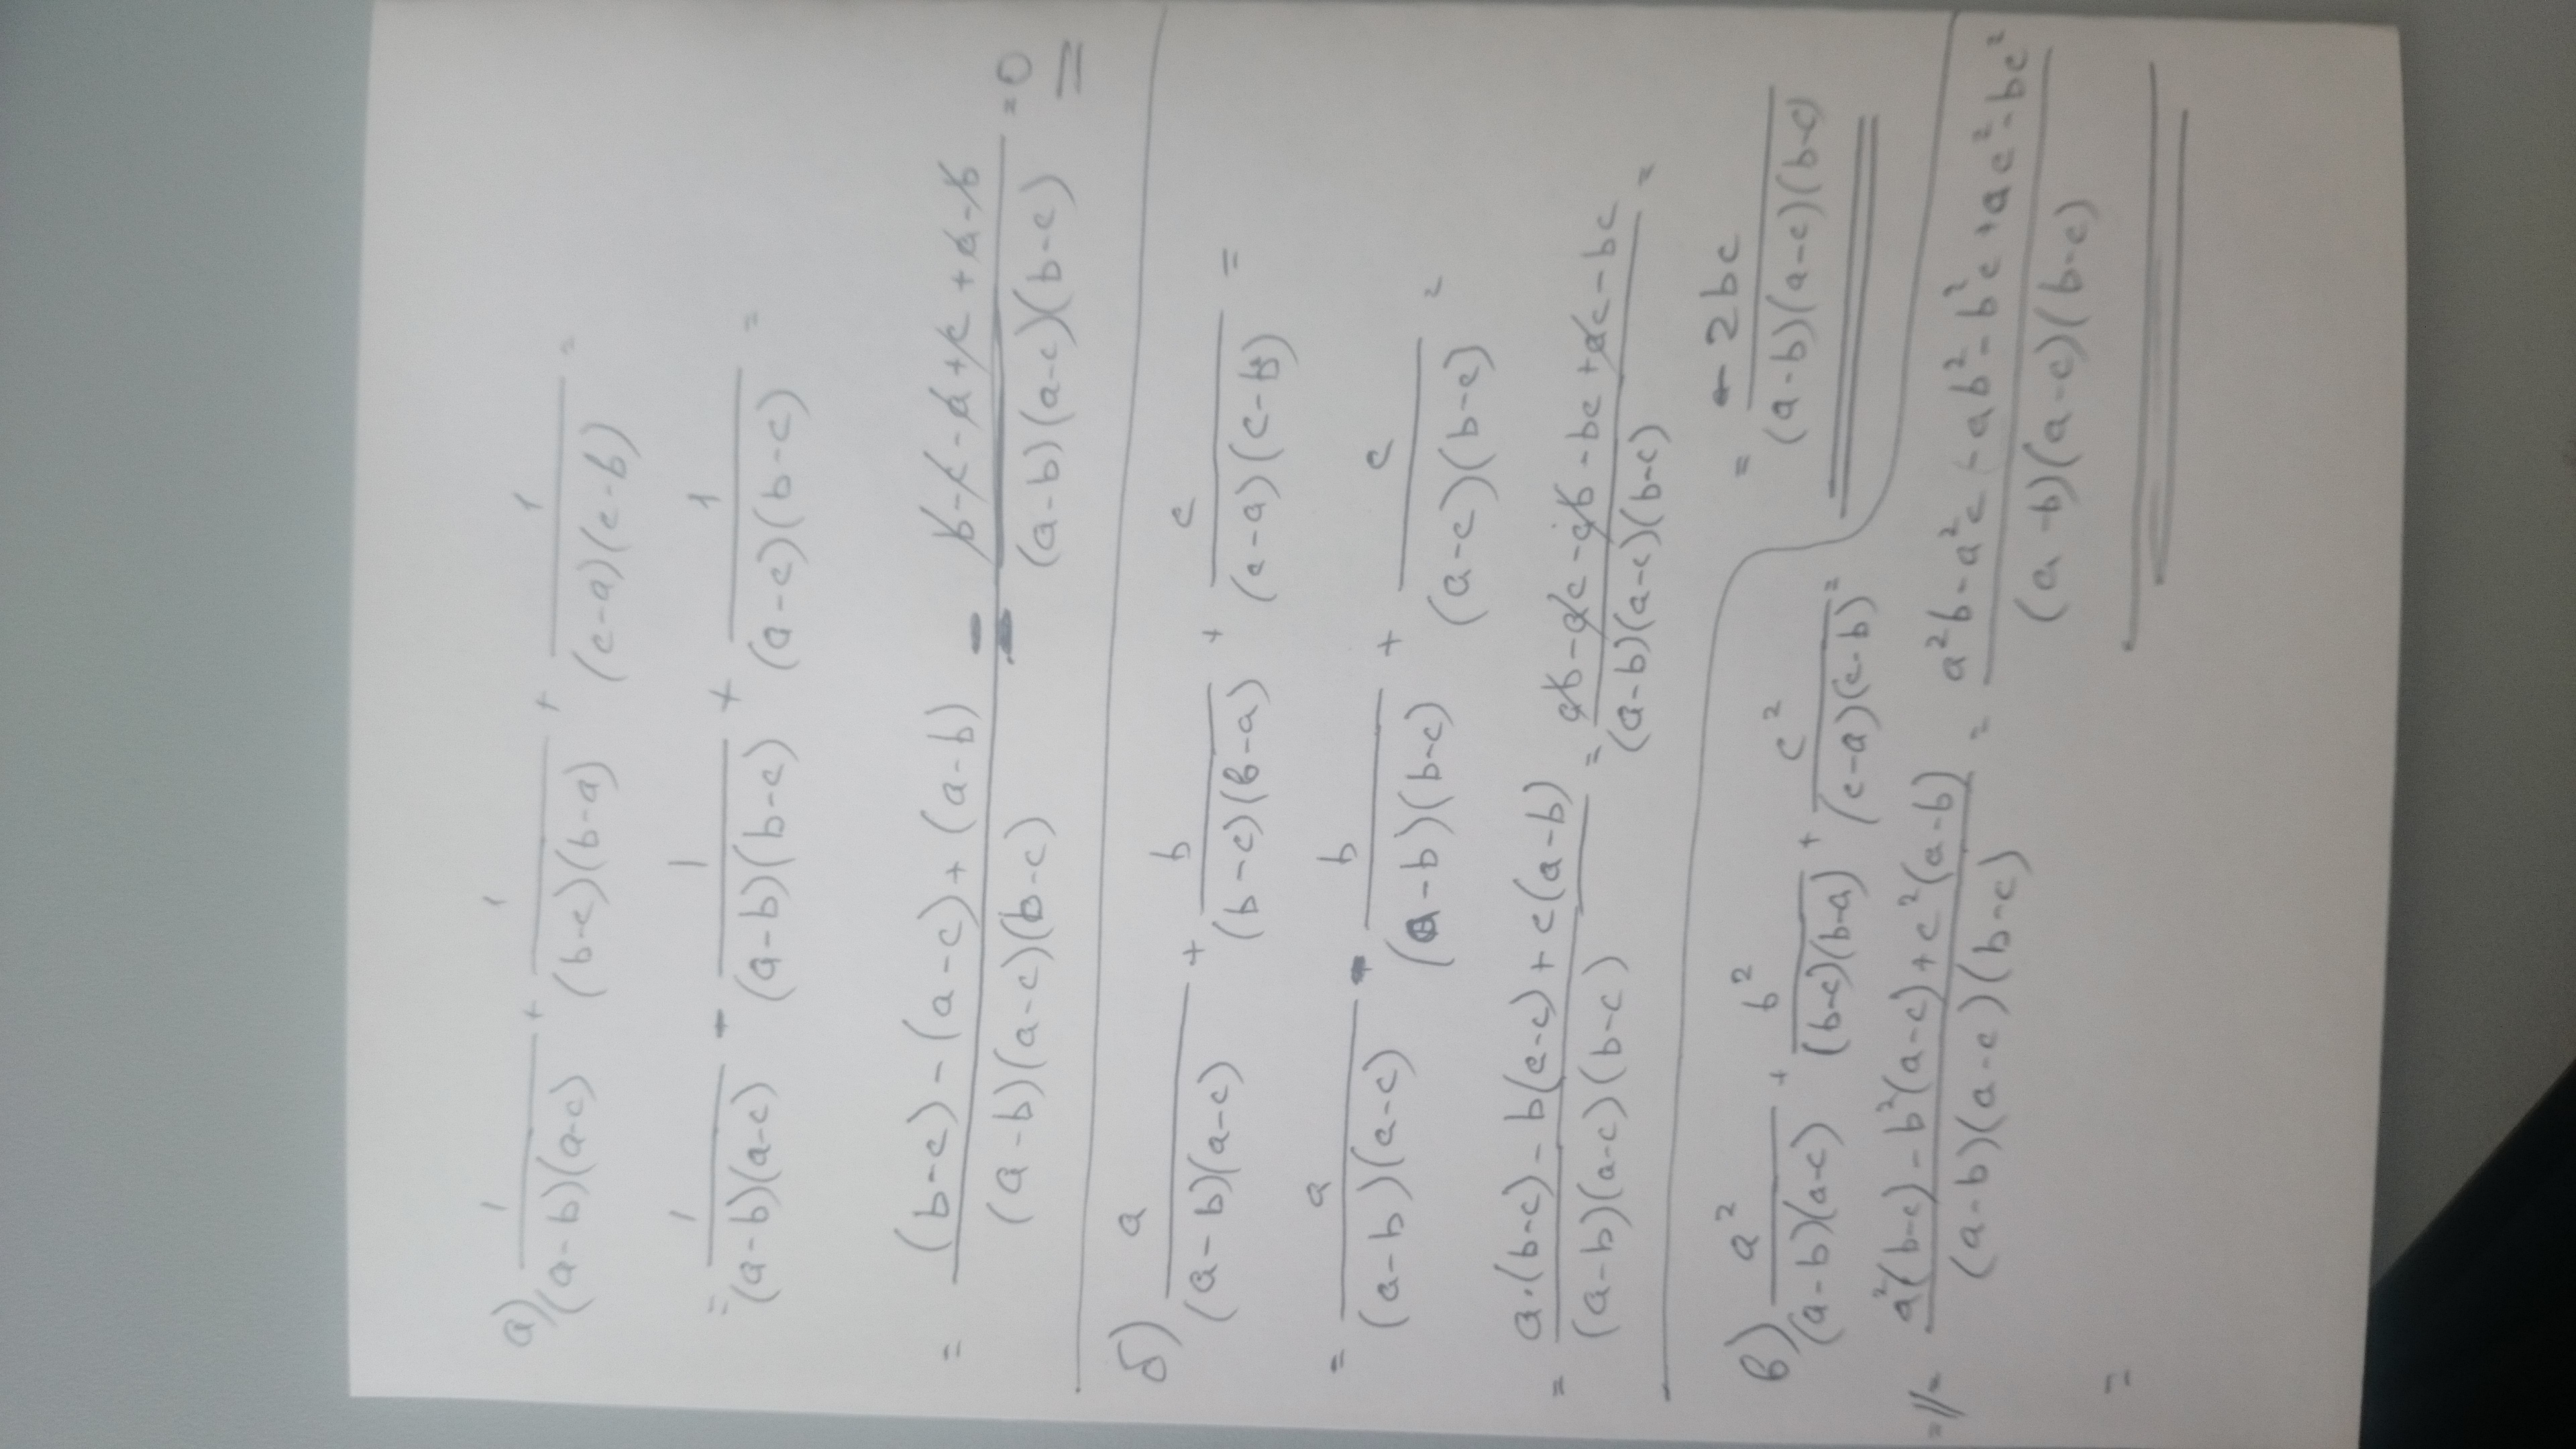 а) 1/((a-b)(a-c)) + 1/((b-c)(b-a)) + 1/((c-a)(c-b)) =
= 1/((a-b)(a-c)) - 1/((a-b)(b-c)) + 1/((a-c)(b-c)) =
= ((b-c)-(a-c)+(a-b))/((a-b)(a-c)(b-c)) = (b-c-a+c+a-b)/((a-b)(a-c)(b-c)) = 0
б) a/((a-b)(a-c)) + b/((b-c)(b-a)) + c/((c-a)(c-b)) =
= a/((a-b)(a-c)) - b/((a-b)(b-c)) + c/((a-c)(b-c)) =
= (a·(b-c)-b(c-c)+c(a-b))/((a-b)(a-c)(b-c)) = (ab-ac-ab-bc+ac-bc)/((a-b)(a-c)(b-c)) =
= -2bc/((a-b)(a-c)(b-c))
в) a²/((a-b)(a-c)) + b²/((b-c)(b-a)) + c²/((c-a)(c-b)) =
= (a²(b-c)-b²(a-c)+c²(a-b))/((a-b)(a-c)(b-c)) = (a²b-a²c-ab²-b²c+ac²-bc²)/((a-b)(a-c)(b-c))
=